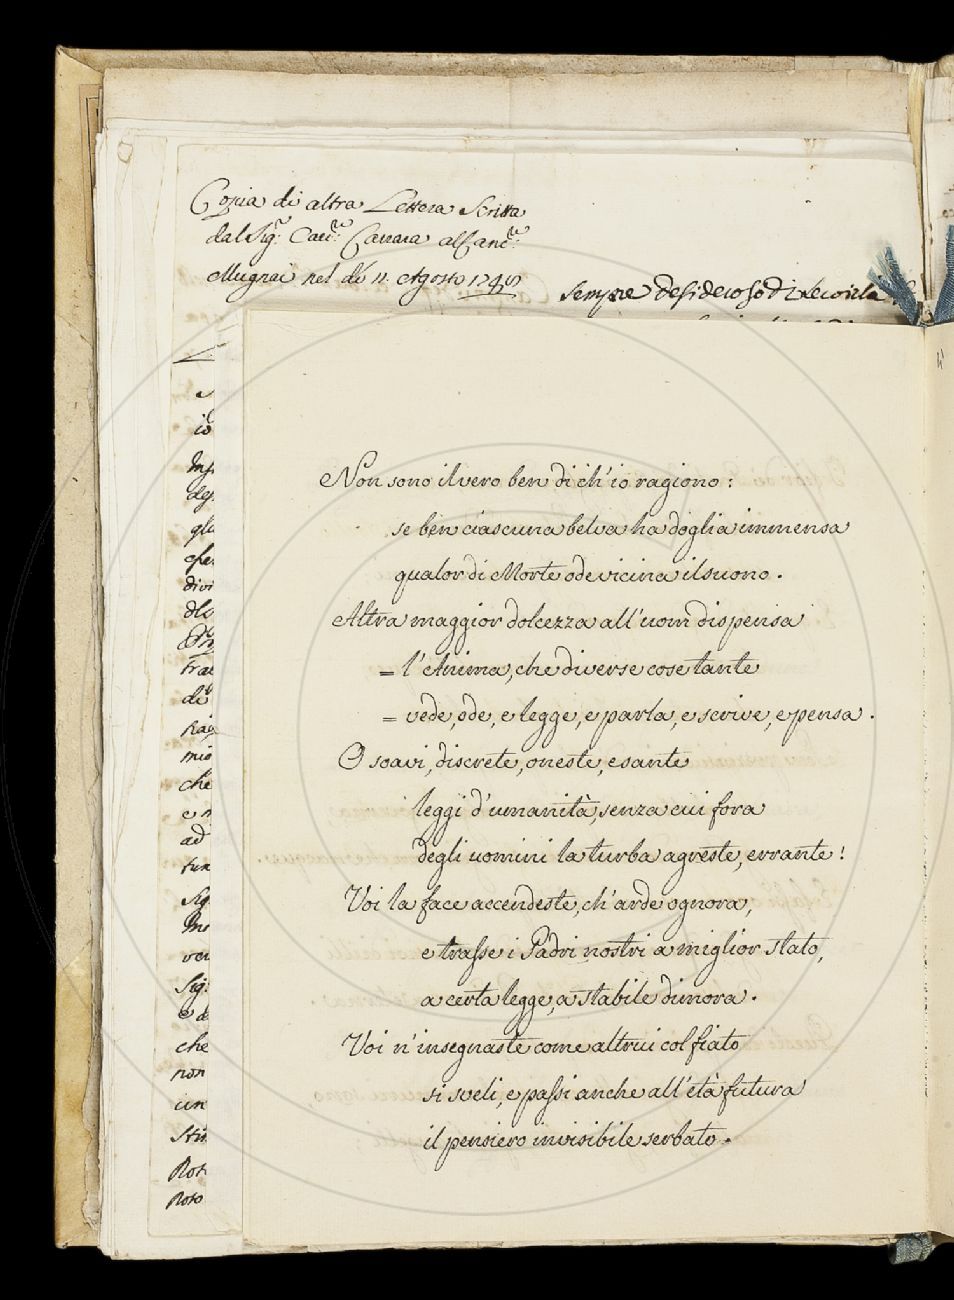 Copia di altra Lettera Scritta
dal Sig.r Cav.re Carrara al Canc.re
Mugnai nel dì 11. Agosto 1748
sempre desideroso di
Non sono il vero ben di ch'io ragiono:
se ben ciascuna belva ha doglia immensa
qualor di Morte ode vicina il suono.
Altra maggior dolcezza all'uom dispensa
= l'Anima, che diverse cose tante
= vede, ode, e legge, e parla, e scrive, e pensa.
O soavi, discrete, oneste, e sante
leggi d'umanità, senza cui fora
degli uomini la turba agreste, errante!
Voi la face accendeste, ch'arde ognora,
e trasse i Padri nostri a miglior stato,
a certa legge, a stabile dimora.
Voi n'insegnaste come altrui col fiato
si sveli, e passi anche all'età futura
il pensiero invisibile serbato.
io
glo
divi
di
mio
che
e n
ad
Sig
Sig.
che
non
un